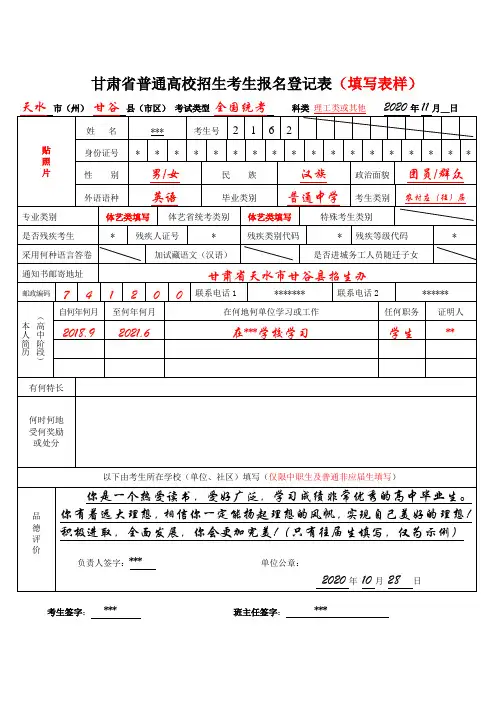 甘肃省普通高校招生考生报名登记表（填写表样）
天水 市（州） 甘谷 县（市区） 考试类型 全国统考 科类 理工类或其他 2020 年 11 月__日
贴照片
姓 名 *** 考生号 2 1 6 2
身份证号 * * * * * * * * * * * * * * * * * *
性 别 男/女 民 族 汉族 政治面貌 团员/群众
外语语种 英语 毕业类别 普通中学 考生类别 农村应（往）届
专业类别 体艺类填写 体艺省统考类别 体艺类填写 特殊考生类别
是否残疾考生 * 残疾人证号 * 残疾类别代码 * 残疾等级代码 *
采用何种语言答卷 加试藏语文（汉语） 是否进城务工人员随迁子女
通知书邮寄地址 甘肃省天水市甘谷县招生办
邮政编码 7 4 1 2 0 0 联系电话1 ******* 联系电话2 ******
本人简历（高中阶段） 自何年何月 至何年何月 在何地何单位学习或工作 任何职务 证明人
2018.9 2021.6 在***学校学习 学生 **
有何特长
何时何地
受何奖励
或处分
以下由考生所在学校（单位、社区）填写（仅限中职生及普通非应届生填写）
品德评价
你是一个热爱读书，爱好广泛，学习成绩非常优秀的高中毕业生。
你有着远大理想，相信你一定能扬起理想的风帆，实现自己美好的理想！
积极进取，全面发展，你会更加完美！（只有往届生填写，仅为示例）
负责人签字：*** 单位公章：
2020 年 10 月 28 日
考生签字： *** 班主任签字： ***